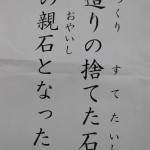 つくり すてたいし
造りの捨てた石
おやいし
の親石となった